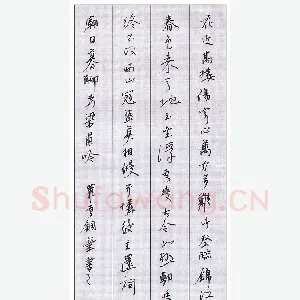 花近高樓傷客心萬方多難此登臨錦江
春色来天地玉壘浮雲變古今北極朝廷
終不改西山寇盗莫相侵可憐後主還祠
廟日暮聊為梁甫吟 鋼筆書
Shufawang.CN